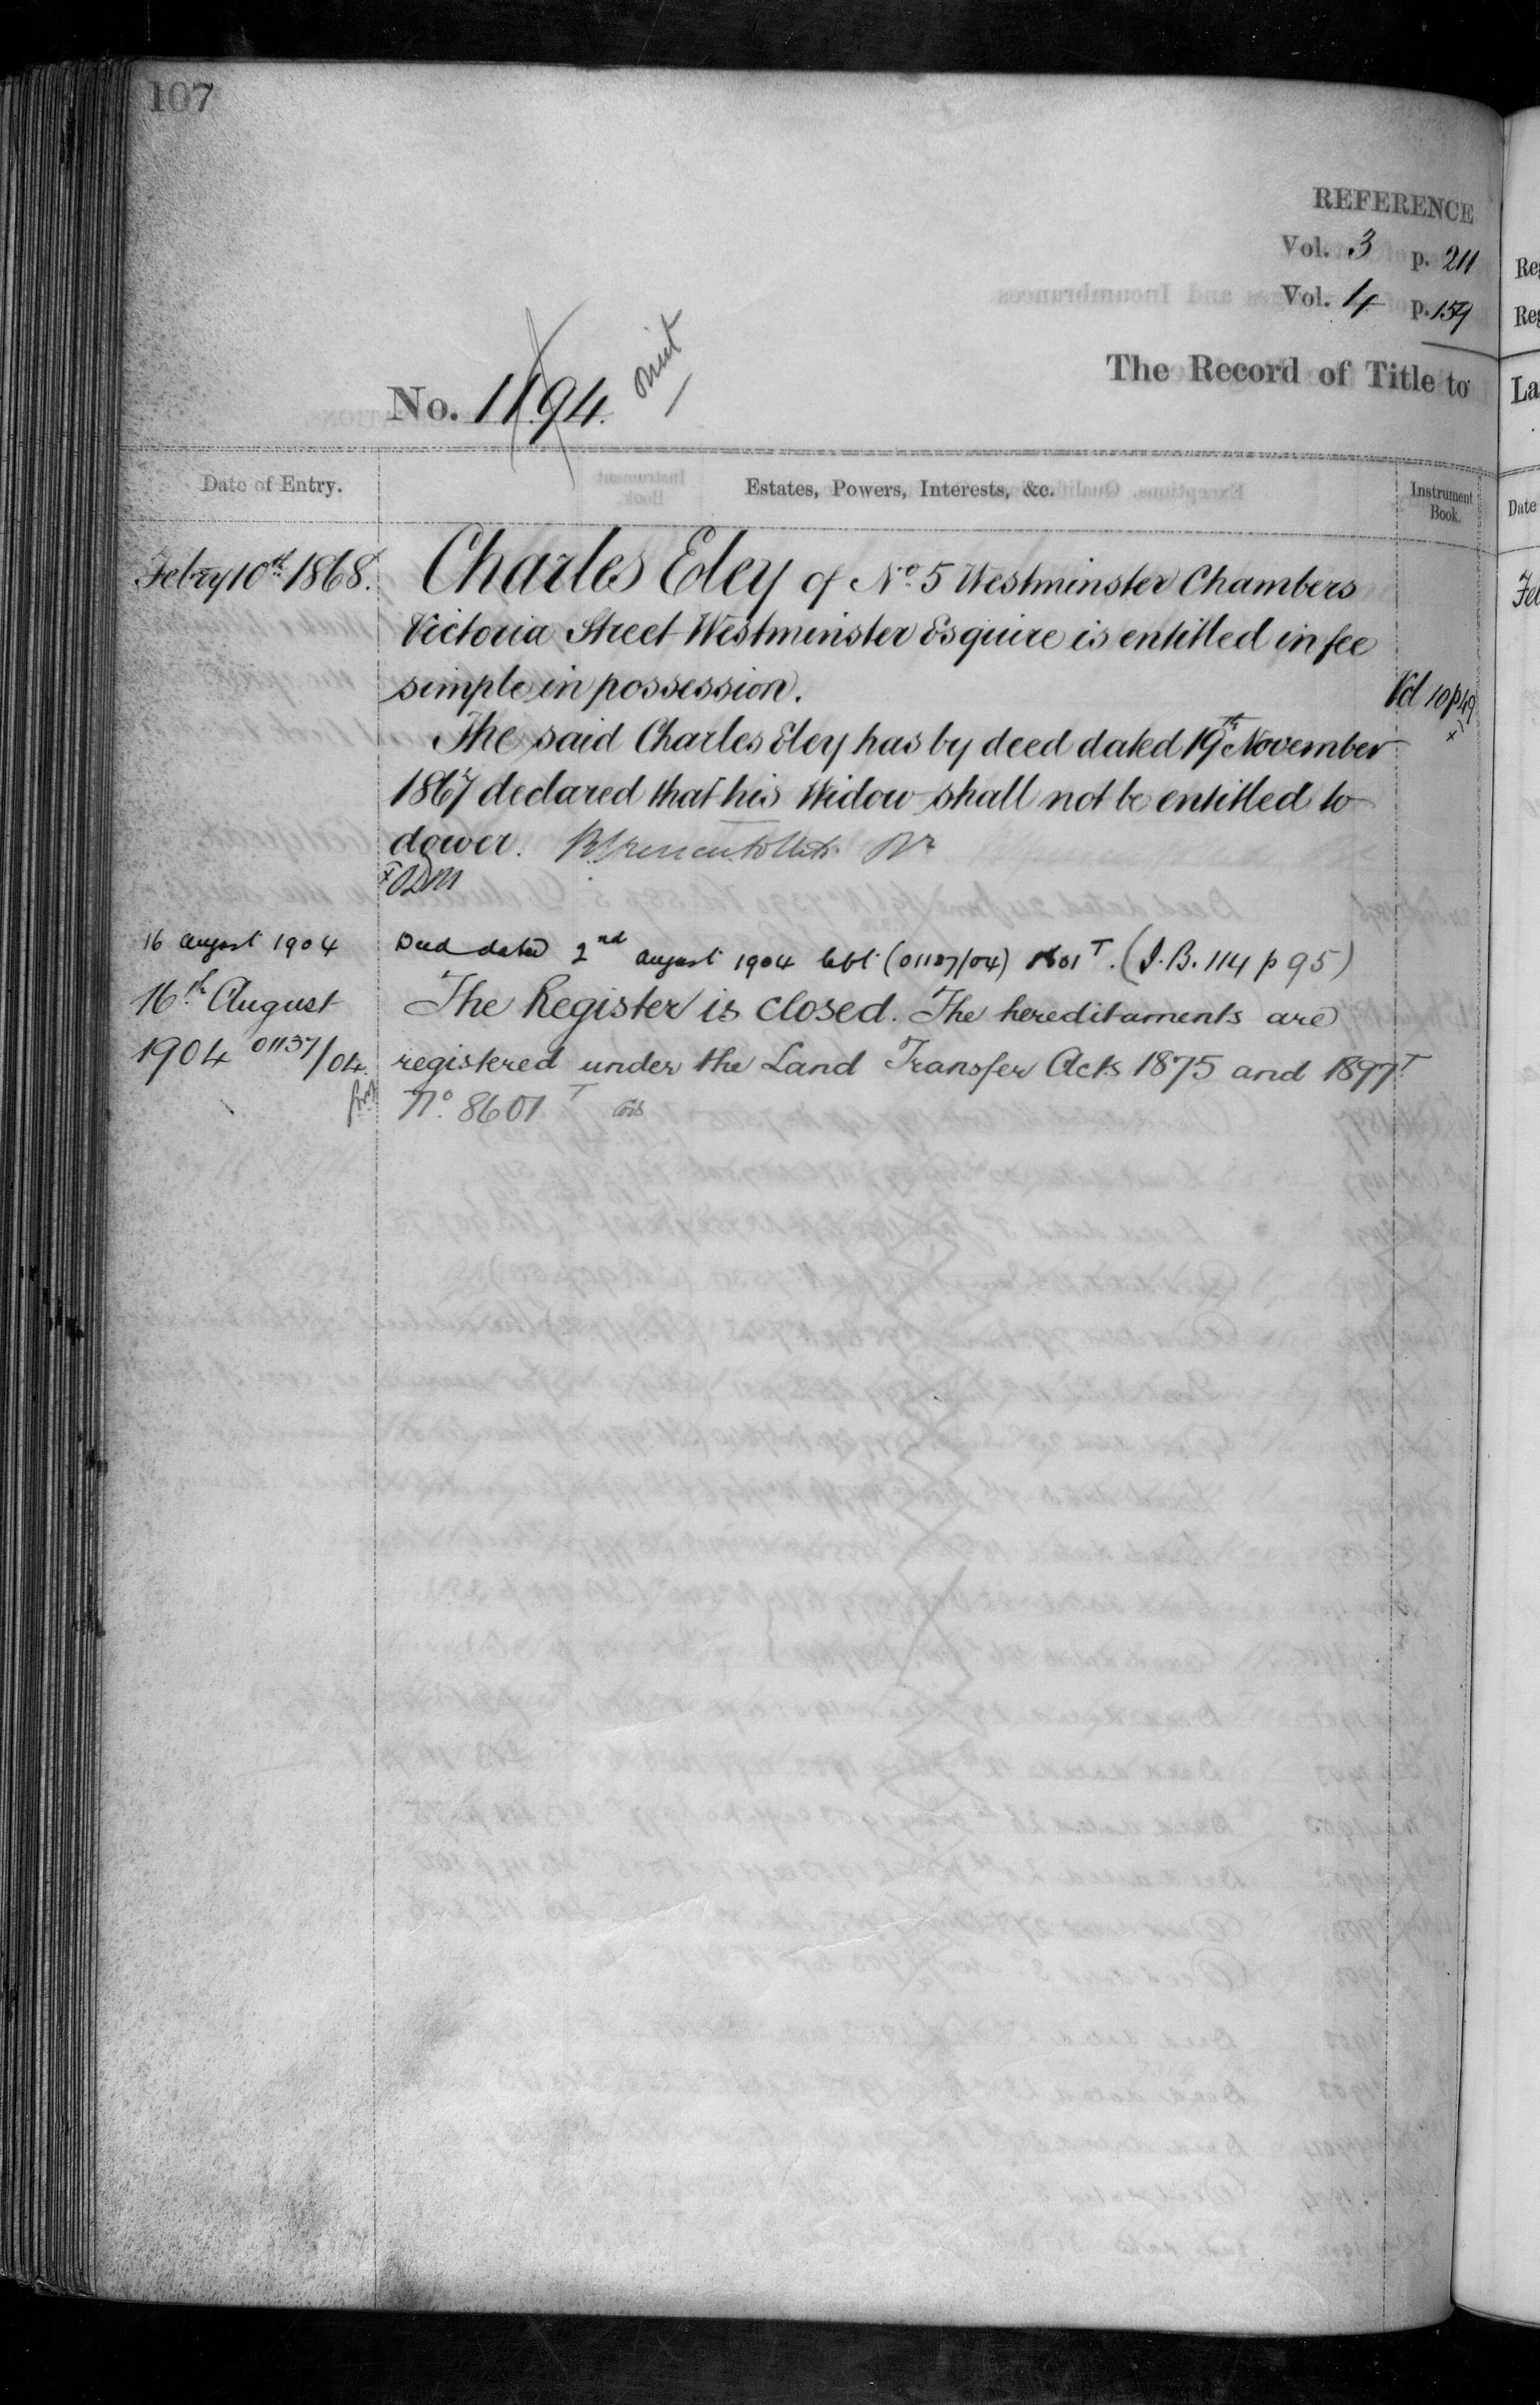 107
REFERENCE
Vol. 3 p. 211
Vol. 4 p. 159
The Record of Title to
No. 1194.
Date of Entry.
Estates, Powers, Interests, &c.
Instrument Book.
Febry 10th 1868.
Charles Eley of No. 5 Westminster Chambers
Victoria Street Westminster Esquire is entitled in fee
simple in possession.
Vol 10 p 49
The said Charles Eley has by deed dated 19th November
1867 declared that his Widow shall not be entitled to
dower.
16 august 1904
Deed dated 2nd august 1904 (J.B. 114 p 95)
16th August
The Register is closed. The hereditaments are
1904 01137/04.
registered under the Land Transfer Acts 1875 and 1897
No. 8601 T
Date